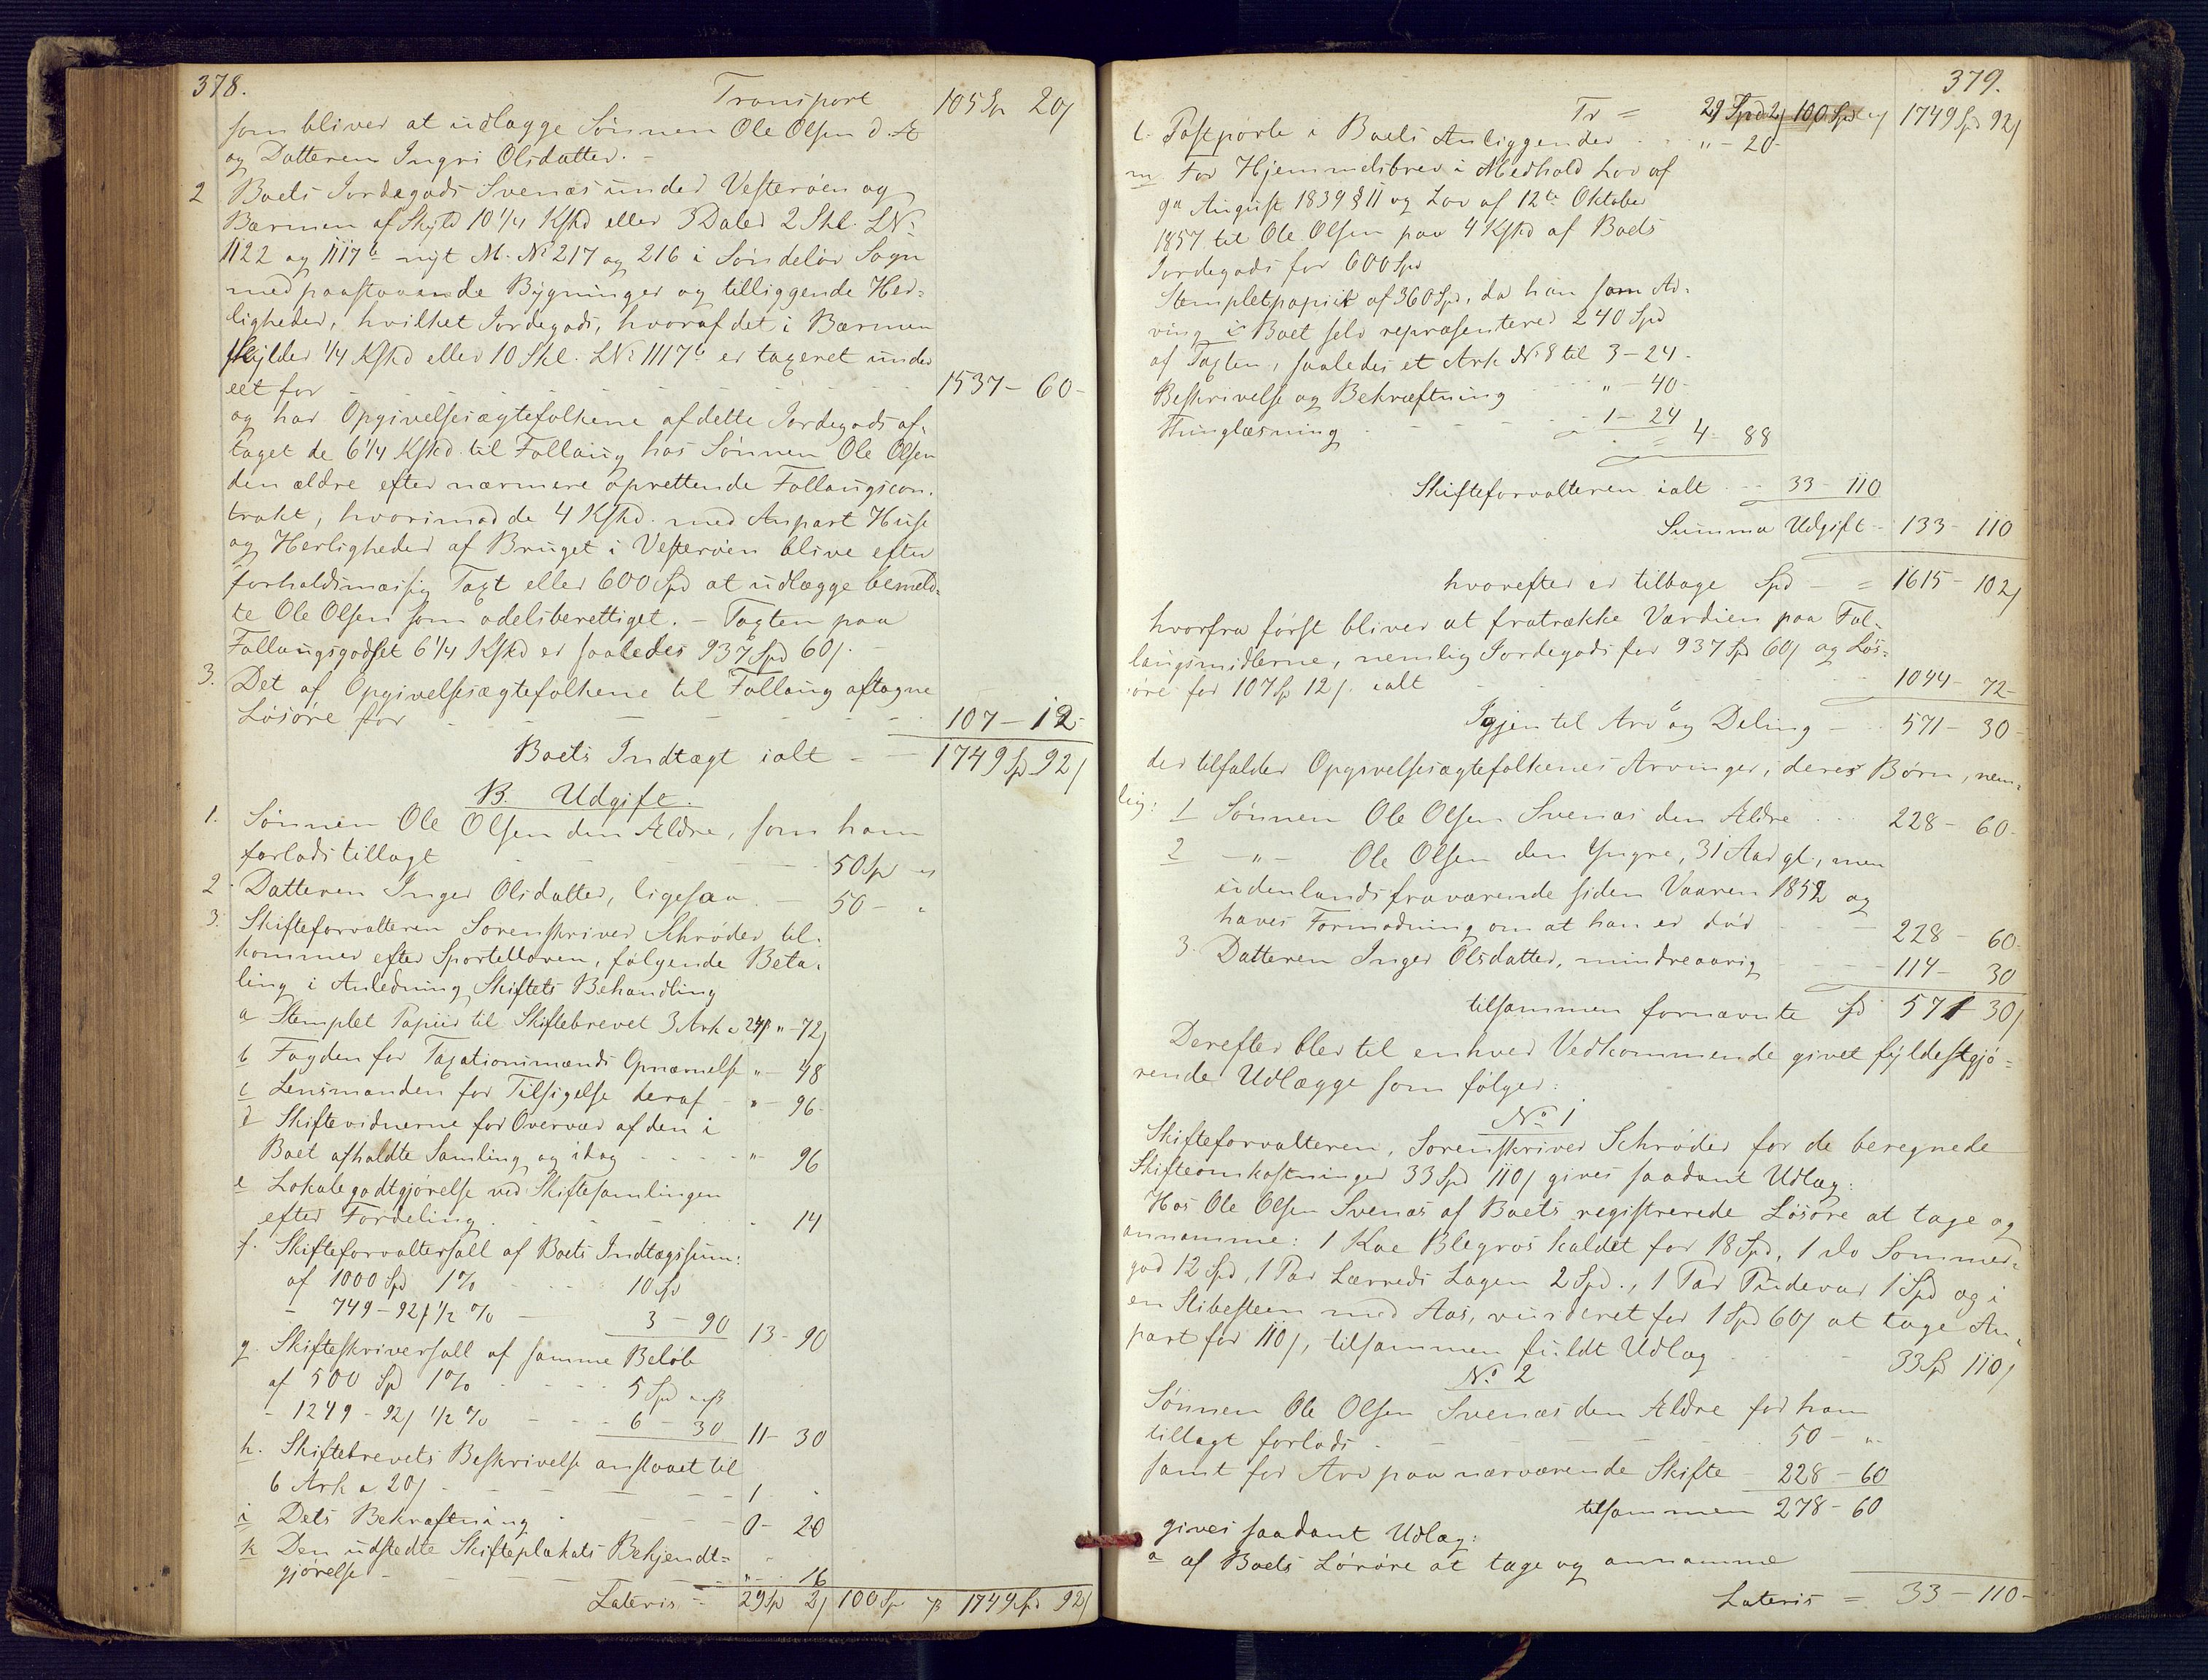 378.
Transport 105 Spd 20 ß
som bliver at udlægge Sönnen Ole Olsen d. Æ
og Datteren Ingri Olsdatter. -
2 Boets Jordegods Svenæs under Vesteröen og
Bærmen af Skyld 10 1/4 Kskd eller 3 Daler 2 Skl. LNº
1122 og 1117 b nyt M. Nº 217 og 216 i Söndelöv Sogn
med paastaaende Bygninger og tilliggende Her-
ligheder, hvilket Jordegods, hvoraf det i Bærmen
skylder 1/4 Kskd eller 10 Skl. LNº 1117 b er taxeret under
eet for - - - 1537 - 60 -
og har Opgivelsesægtefolkene af dette Jordegods af-
taget de 6 1/4 Kskd til Follaug hos Sönnen Ole Olsen
den ældre efter nærmere oprettende Follaugscon-
trakt, hvorimod de 4 Kskd. med Anpart Huse
og Herligheder af Bruget i Vesteröen blive efter
forholdsmæssig Taxt eller 600 Spd at udlægge bemeld-
te Ole Olsen som odelsberettiget. - Taxten paa
Follaugsgodset 6 1/4 Kskd er saaledes 937 Spd 60 ß. -
3. Det af Opgivelsesægtefolkene til Follaug aftagne
Lösöre for - - - 107 - 12 -
Boets Indtægt ialt - - 1749 Spd 92 ß
B. Udgift.
1. Sönnen Ole Olsen den Ældre, som ham
forlods tillagt - - 50 Spd "
2. Datteren Inger Olsdatter, ligesaa - 50 - "
3. Skifteforvalteren Sorenskriver Schröder til-
kommer efter Sportelloven, fölgende Beta-
ling i Anledning Skiftets Behandling
a Stemplet Papiir til Skiftebrevet 3 Ark a 24 ß " - 72 ß
b Fogden for Taxationsmænds Opnævnelse " - 48
c Lensmanden for Tilsigelse deraf - " - 96
d Skiftevidnerne for Overvær af den i
Boet afholdte Samling og idag - - - " - 96
e Lokalegodtgjörelse ved Skiftesamlingen
efter Fordeling - - - 14
f. Skifteforvaltersall af Boets Indtægtssum:
af 1000 Spd 1% - - 10 Spd
- 749 - 92 ß 1/2 % - 3 - 90 13 - 90
g. Skifteskriversall af samme Belöb
af 500 Spd 1% - - - 5 Spd " ß
- 1249 - 92 ß 1/2 % - - 6 - 30 11 - 30
h. Skiftebrevets Beskrivelse anslaaet til
6 Ark a 20 ß - - - 1 - "
i Dets Bekræftning - - - 0 - 20
k Den udstedte Skifteplakats Bekjendt-
gjörelse - - - " - 16
Lateris - 29 Spd 2 ß 100 Spd " ß 1749 Spd 92 ß
379.
Tr = 29 Spd 2 ß 100 Spd " ß 1749 Spd 92 ß
l. Postporto i Boets Anliggender - - " - 20 -
m For Hjemmelsbrev i Medhold Lov af
9de August 1839 § 11 og Lov af 12te Oktober
1857 til Ole Olsen paa 4 Kskd af Boets
Jordegods for 600 Spd
Stempletpapiir af 360 Spd, da han som Ar-
ving i Boet selv repræsenterer 240 Spd
af Taxten, saaledes et Ark Nº 8 til 3 - 24 -
Beskrivelse og Bekræftning - - " - 40 -
Thinglæsning - - - 1 - 24
= 4 - 88
Skifteforvalteren ialt - - 33 - 110
Summa Udgift - 133 - 110
hvorefter er tilbage Spd - = 1615 - 102 ß
hvorfra först bliver at fratrække Værdien paa Fol-
laugsmidlerne, nemlig Jordegods for 937 Spd 60 ß og Lös-
öre for 107 Sp 12 ß. ialt - - - 1044 - 72 -
Igjen til Arv og Deling - - 571 - 30 -
der tilfalder Opgivelsesægtefolkenes Arvinger, deres Börn, nem-
lig: 1 Sönnen Ole Olsen Svenæs den Ældre - - 228 - 60 -
2 - " - Ole Olsen den Yngre, 31 Aar gl., men
udenlands fraværende siden Vaaren 1852 og
haves Formodning om at han er död - - 228 - 60 -
3. Datteren Inger Olsdatter, mindreaarig - - - 114 - 30
tilsammen fornævnte Spd 571 - 30 ß
Derefter blev til enhver Vedkommende givet fyldestgjö-
rende Udlægge som fölger:
Nº 1
Skifteforvalteren, Sorenskriver Schröder for de beregnede
Skifteomkostninger 33 Spd 110 ß gives saadant Udlæg:
Hos Ole Olsen Svenæs af Boets registrerede Lösöre at tage og
annamme: 1 Koe Blegros kaldet for 18 Spd, 1 do Sommer-
god 12 Spd, 1 Par Lærreds Lagen 2 Spd., 1 Par Pudevar 1 Spd og i
en Slibesteen med Aas, vurderet for 1 Spd 60 ß at tage An-
part for 110 ß, tilsammen fuldt Udlæg - - - 33 Spd 110 ß
Nº 2
Sönnen Ole Olsen Svenæs den Ældre for ham
tillagt forlods - - - 50 - "
samt for Arv paa nærværende Skifte - 228 - 60
tilsammen 278 - 60
gives saadant Udlæg:
a af Boets Lösöre at tage og annamme
Lateris = 33 - 110 -